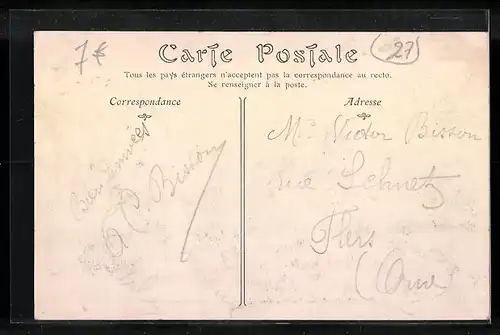 7€
Carte Postale
(27)
Tous les pays étrangers n'acceptent pas la correspondance au recto.
Se renseigner à la poste.
Correspondance
Bien
A. Bisson
Adresse
Mr Victor Bisson
rue Schnetz
Flers
(Orne)